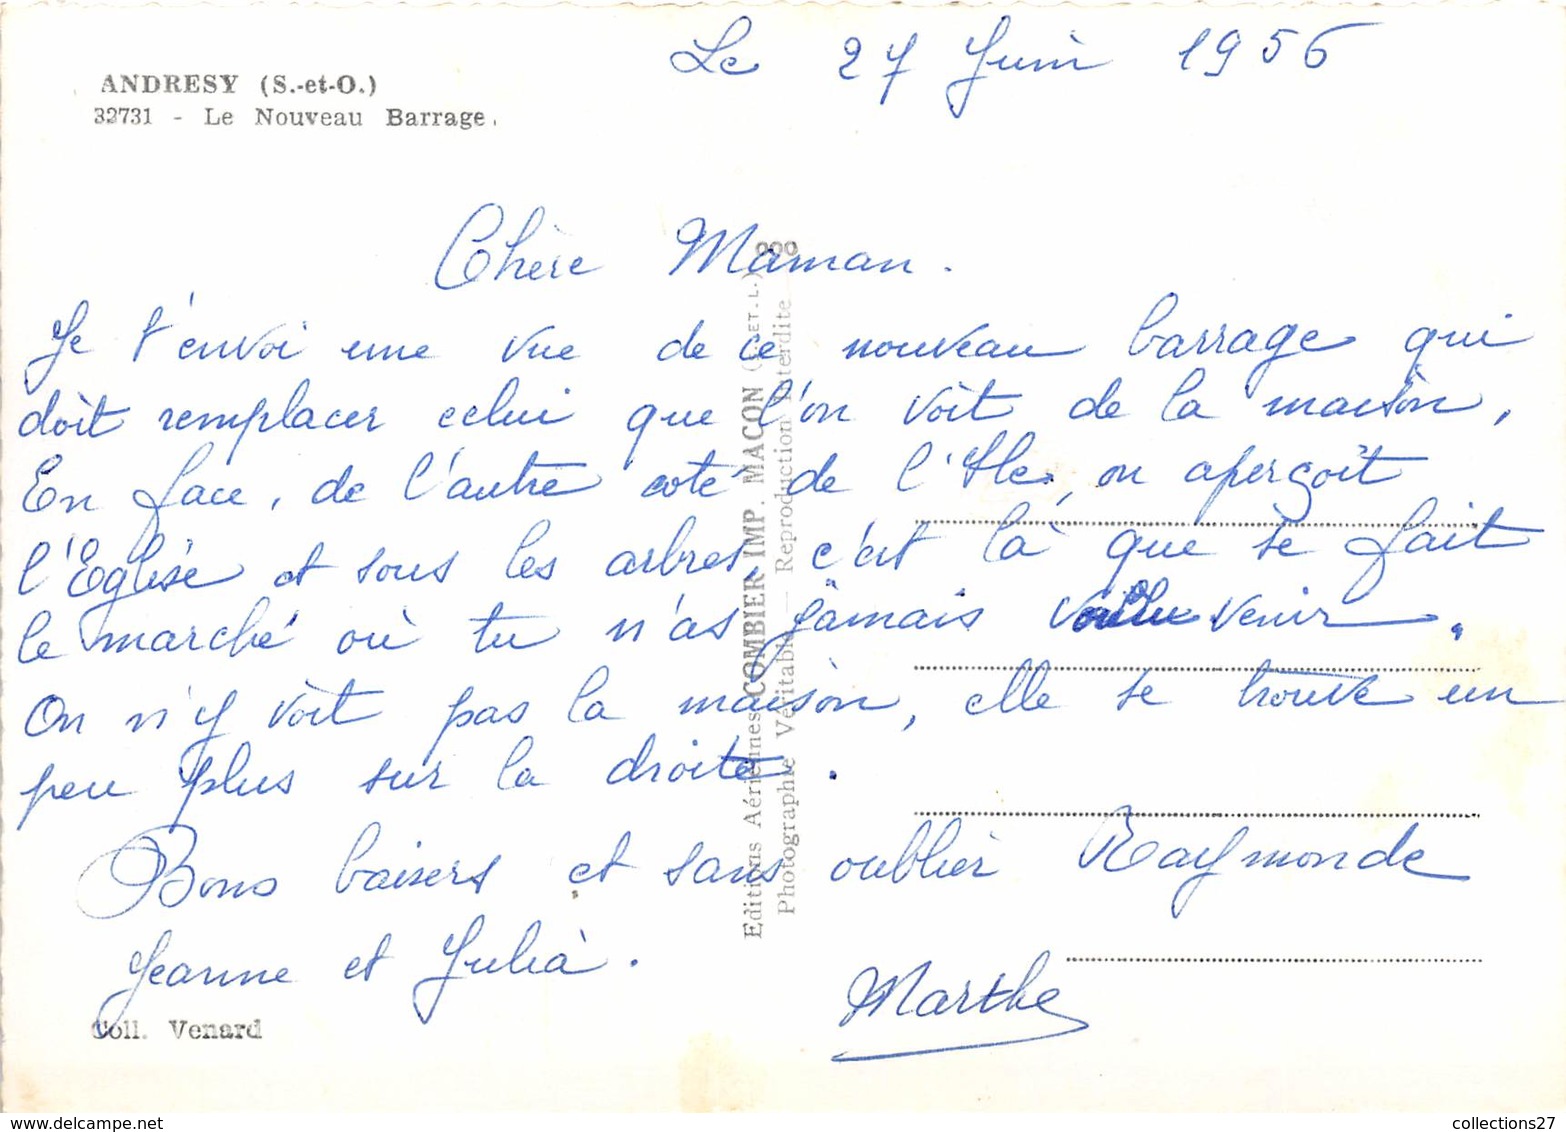 Le 27 Juin 1956
ANDRESY (S.-et-O.)
32731 - Le Nouveau Barrage.
Chère Maman.
Je t'envoi une vue de ce nouveau barrage qui
doit remplacer celui que l'on voit de la maison,
En face, de l'autre coté de l'Ile, on aperçoit
l'Eglise et sous les arbres, c'est là que se fait
le marché où tu n'as jamais voulu venir.
On n'y voit pas la maison, elle se trouve un
peu plus sur la droite.
Bons baisers et sans oublier Raymonde
Jeanne et Julia.
Marthe
Coll. Venard
Editions Aériennes COMBIER IMP. MACON (S. ET. L.)
Photographie Véritable — Reproduction Interdite
collections27